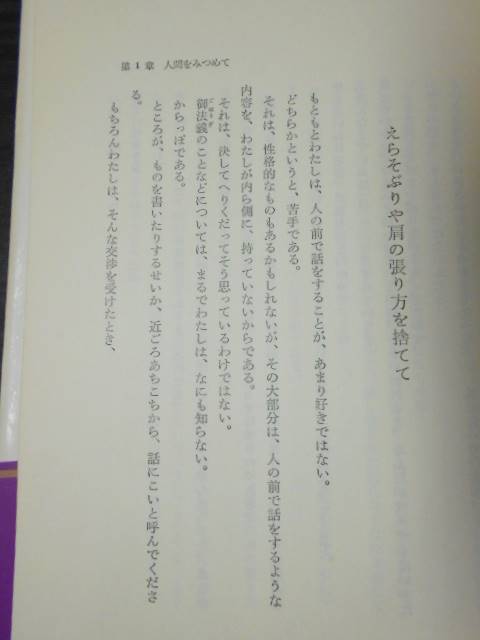 第1章 人間をみつめて
えらそぶりや肩の張り方を捨てて
もともとわたしは、人の前で話をすることが、あまり好きではない。
どちらかというと、苦手である。
それは、性格的なものもあるかもしれないが、その大部分は、人の前で話をするような
内容を、わたしが内ら側に、持っていないからである。
それは、決してへりくだってそう思っているわけではない。
御法義のことなどについては、まるでわたしは、なにも知らない。
からっぽである。
ところが、ものを書いたりするせいか、近ごろあちこちから、話にこいと呼んでくださ
る。
もちろんわたしは、そんな交渉を受けたとき、